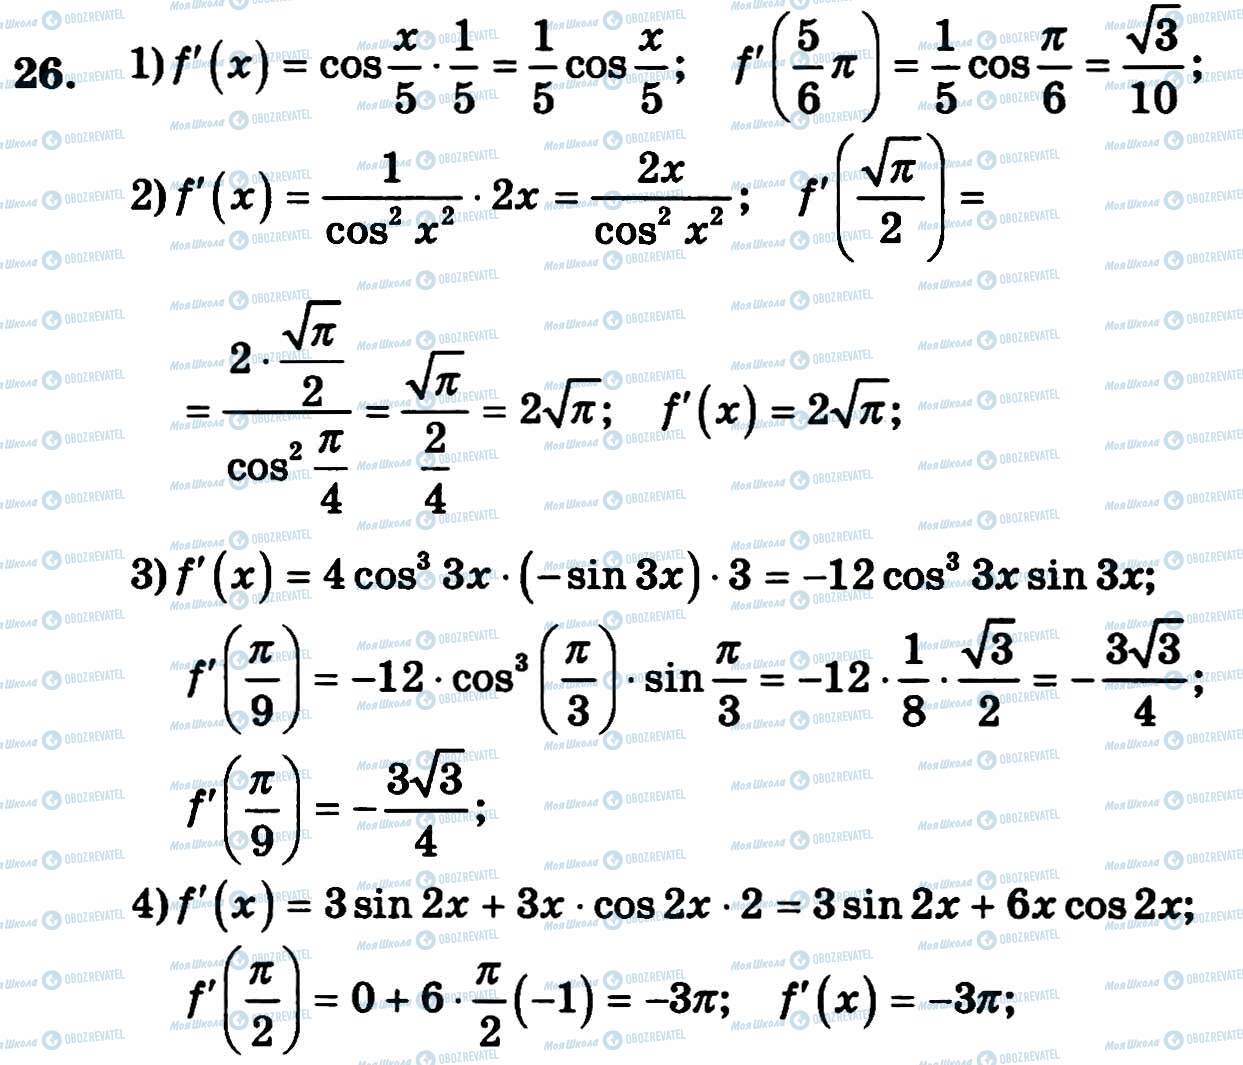 26. 1) f′(x) = cos x/5 · 1/5 = 1/5 cos x/5; f′(5/6 π) = 1/5 cos π/6 = √3/10;
2) f′(x) = 1/(cos² x²) · 2x = 2x/(cos² x²); f′(√π/2) =
= (2 · √π/2)/(cos² π/4) = √π/(2/4) = 2√π; f′(x) = 2√π;
3) f′(x) = 4 cos³ 3x · (−sin 3x) · 3 = −12 cos³ 3x sin 3x;
f′(π/9) = −12 · cos³(π/3) · sin π/3 = −12 · 1/8 · √3/2 = −3√3/4;
f′(π/9) = −3√3/4;
4) f′(x) = 3 sin 2x + 3x · cos 2x · 2 = 3 sin 2x + 6x cos 2x;
f′(π/2) = 0 + 6 · π/2 (−1) = −3π; f′(x) = −3π;
Моя Школа OBOZREVATEL